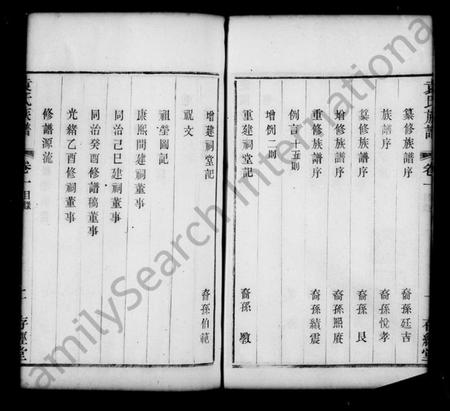 袁氏族譜 卷一 存經堂
纂修族譜序 裔孫廷吉
族譜序 裔孫悅孝
纂修族譜序 裔孫 艮
增修族譜序 裔孫熙賡
重修族譜序 裔孫續震
例言十五則
增例二則
重建祠堂記 裔孫 敦
增建祠堂記 裔孫伯范
祝文
祖塋圖記
康熙間建祠董事
同治己巳建祠董事
同治癸酉修譜稿董事
光緒乙酉修祠董事
修譜源流
袁氏族譜 卷一 目錄 二 存經堂
FamilySearch International